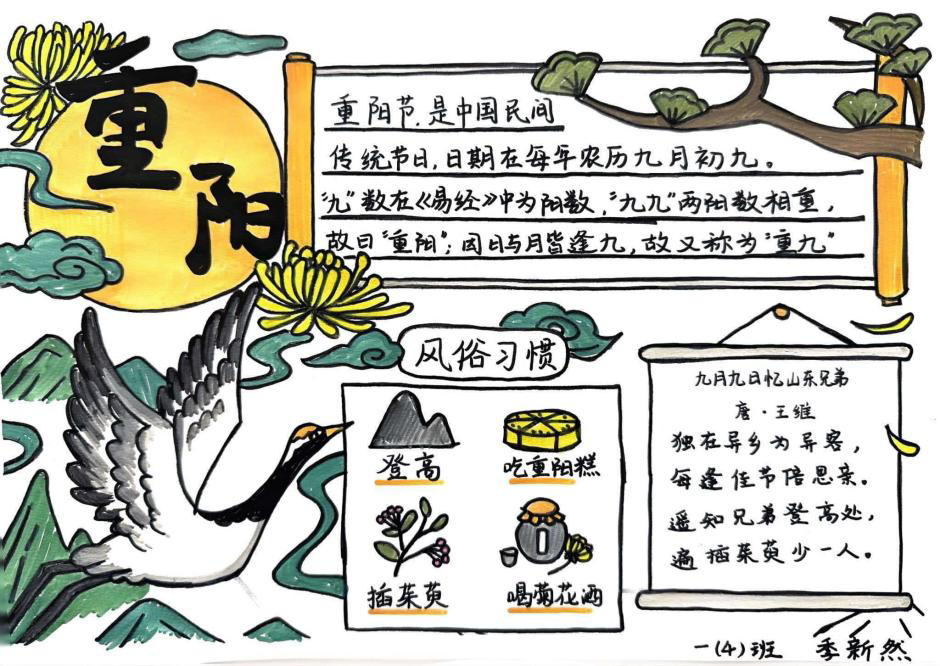 重阳
重阳节，是中国民间
传统节日，日期在每年农历九月初九。
"九"数在《易经》中为阳数，"九九"两阳数相重，
故曰"重阳"；因日与月皆逢九，故又称为"重九"
风俗习惯
登高
吃重阳糕
插茱萸
喝菊花酒
九月九日忆山东兄弟
唐·王维
独在异乡为异客，
每逢佳节倍思亲。
遥知兄弟登高处，
遍插茱萸少一人。
一(4)班 季新然